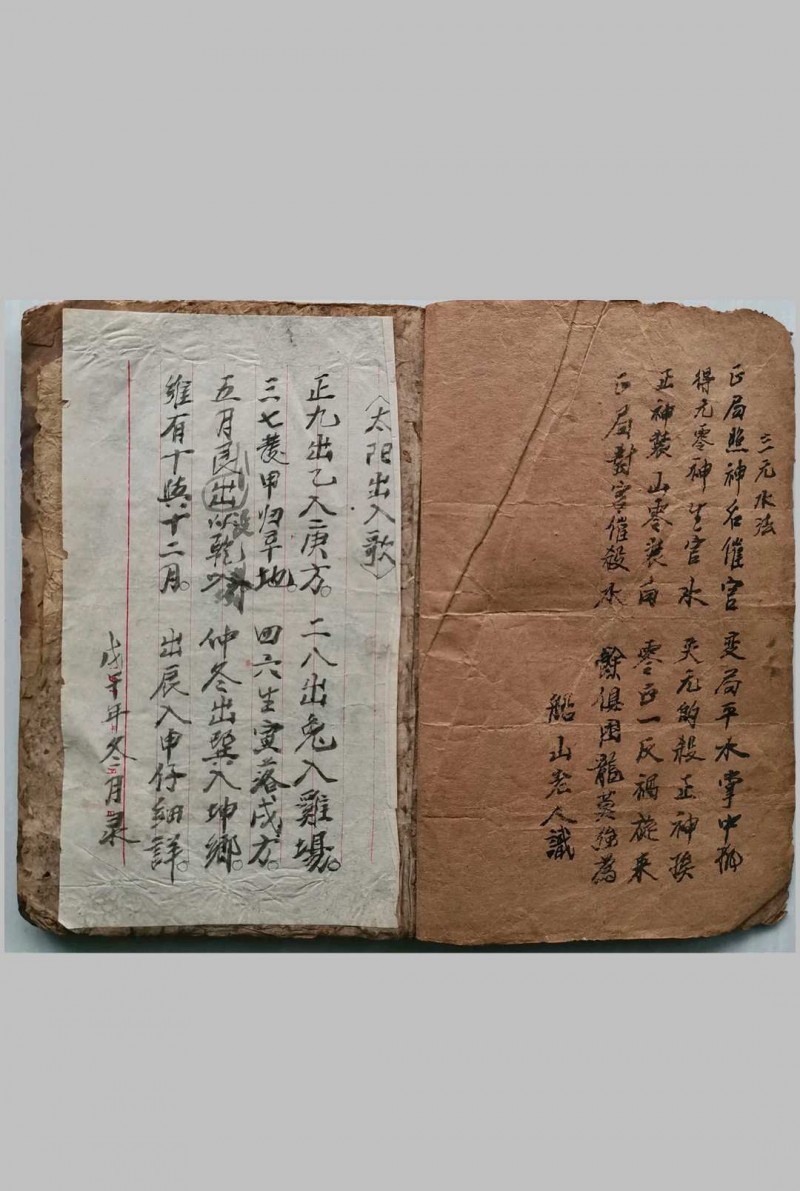 三元水法
正局照神名催官 变局平水掌中
得元零神生官水 失元的殺正神挨
正神装山零装向 零正一反禍旋来
正局對宫催殺水 餘俱困龍莫強為
船山老人識
〈太阳出入歌〉
正九出乙入庚方。二八出兔入雞場。
三七發甲归辛地。四六生寅落戌方。
五月艮出以乾没 仲冬出巽入坤鄉。
維有十與十二月。出辰入申仔細詳。
戊午年冬月录